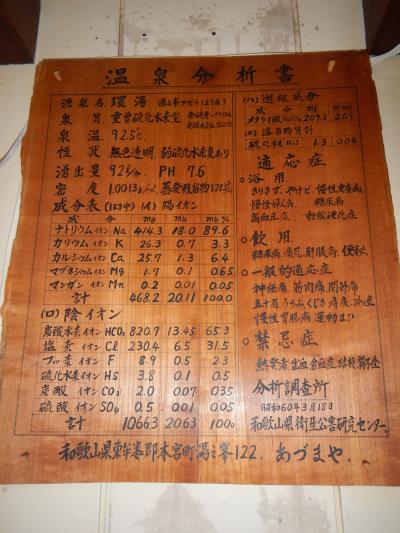 温泉分析書
源泉名 環湯
泉質 重曹硫化水素型
泉温 92.5℃
性状 無色透明 弱硫化水素臭あり
湧出量 PH 7.6
密度 蒸発残留物
成分表 (イ)陽イオン
成分 mg mb mb%
ナトリウムイオン Na 414.3 18.0 89.6
カリウムイオン K 26.3 0.7 3.3
カルシウムイオン Ca 25.7 1.3 6.4
マグネシウムイオン Mg 1.7 0.1 0.65
マンガンイオン Mn 0.2 0.01 0.05
計 468.2 20.11 100.0
(ロ)陰イオン
炭酸水素イオン HCO3 820.7 13.45 65.3
塩素イオン Cl 230.4 6.5 31.5
フッ素イオン F 8.9 0.5 2.3
硫化水素イオン HS 3.8 0.1 0.5
炭酸イオン CO3 2.0 0.07 0.35
硫酸イオン SO4 0.5 0.01 0.05
計 1066.3 20.63 100.0
(ハ)遊離成分
成分 mg mmol
メタケイ酸 209.8 2.69
(ニ)溶存物質計
硫化水素 H2S 1.3 0.04
適応症
○浴用
きりきず、やけど、慢性皮膚病
慢性婦人病、糖尿病
高血圧症、動脈硬化症
○飲用
糖尿病、痛風、肝臓病、便秘
○一般的適応症
神経痛 筋肉痛 関節痛
五十肩 うちみ くじき 痔疾 冷え
慢性胃腸病 運動まひ
○禁忌症
分析調査所
昭和60年3月18日
和歌山県衛生公害研究センター
和歌山県東牟婁郡本宮町湯峯122. あづまや.